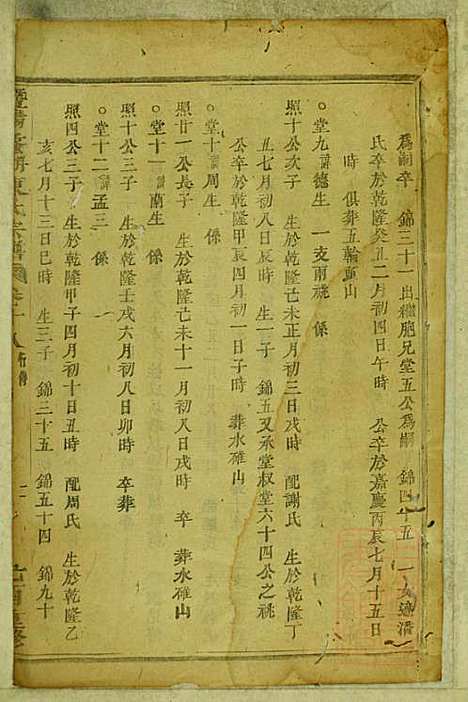 為嗣卒 錦三十一出繼胞兄堂五公為嗣 錦四十五 一女適潘
氏卒於乾隆癸丑二月初四日午時 公卒於嘉慶丙辰七月十五日
時 俱葬五輪重山
○堂九諱德生 一支兩祧 係
照十公次子 生於乾隆己未正月初三日戌時 配謝氏 生於乾隆丁
丑七月初八日辰時 生一子 錦五又承堂叔堂六十四公之祧
公卒於乾隆甲辰四月初一日子時 葬水碓山
○堂十諱周生 係
照廿一公長子 生於乾隆己未十一月初八日戌時 卒 葬水碓山
○堂十一諱南生 係
照十公三子 生於乾隆壬戌六月初八日卯時 卒葬
○堂十二諱孟三 係
照四公三子 生於乾隆甲子四月初十日丑時 配周氏 生於乾隆乙
亥七月十三日巳時 生三子 錦二十五 錦五十四 錦九十
氏宗譜